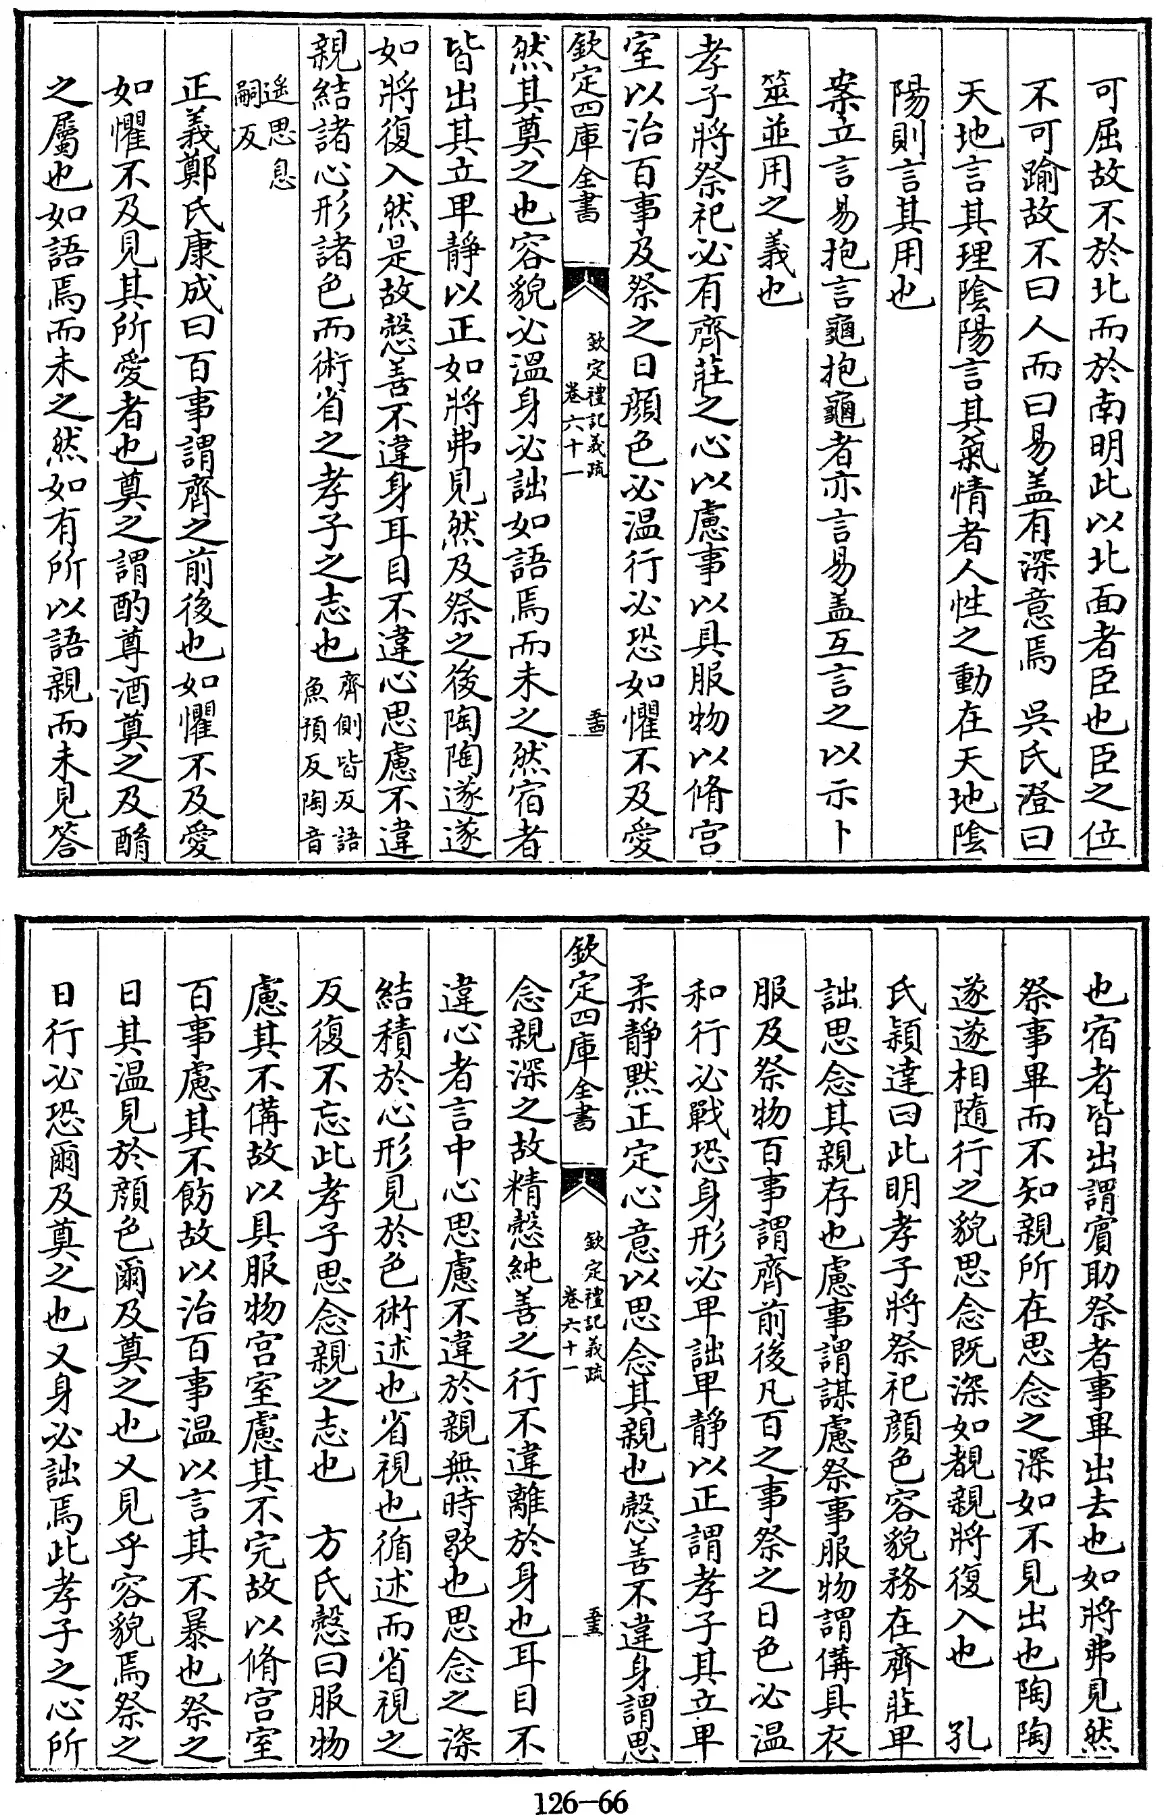 可屈故不於北而於南明此以北面者臣也臣之位
不可踰故不曰人而曰易盖有深意焉 吳氏澄曰
天地言其理陰陽言其氣情者人性之動在天地陰
陽則言其用也
案立言易抱言龜抱龜者亦言易盖互言之以示卜
筮並用之義也
孝子將祭祀必有齊莊之心以慮事以具服物以脩宫
室以治百事及祭之日顔色必温行必恐如懼不及愛
欽定四庫全書
欽定禮記義疏
卷六十一
五十四
然其奠之也容貌必温身必詘如語焉而未之然宿者
皆出其立卑靜以正如將弗見然及祭之後陶陶遂遂
如將復入然是故慤善不違身耳目不違心思慮不違
親結諸心形諸色而術省之孝子之志也
齊側皆反語
魚預反陶音
遥思息
嗣反
正義鄭氏康成曰百事謂齊之前後也如懼不及愛
如懼不及見其所愛者也奠之謂酌尊酒奠之及酳
之屬也如語焉而未之然如有所以語親而未見答
也宿者皆出謂賔助祭者事畢出去也如將弗見然
祭事畢而不知親所在思念之深如不見出也陶陶
遂遂相隨行之貌思念既深如覩親將復入也 孔
氏穎達曰此明孝子將祭祀顔色容貌務在齊莊卑
詘思念其親存也慮事謂謀慮祭事服物謂備具衣
服及祭物百事謂齊前後凡百之事祭之日色必温
和行必戰恐身形必卑詘卑靜以正謂孝子其立卑
柔靜黙正定心意以思念其親也慤善不違身謂思
欽定四庫全書
欽定禮記義疏
卷六十一
五十五
念親深之故精慤純善之行不違離於身也耳目不
違心者言中心思慮不違於親無時歇也思念之深
結積於心形見於色術述也省視也循述而省視之
反復不忘此孝子思念親之志也 方氏慤曰服物
慮其不備故以具服物宫室慮其不完故以脩宫室
百事慮其不飭故以治百事温以言其不暴也祭之
日其温見於顔色爾及奠之也又見乎容貌焉祭之
日行必恐爾及奠之也又身必詘焉此孝子之心所
126—66